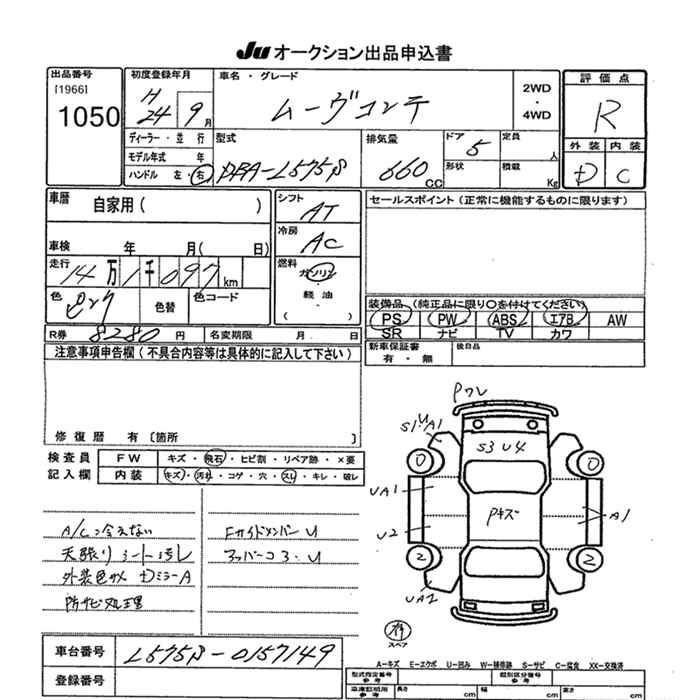 Ju オークション出品申込書
出品番号
[1966]
1050
初度登録年月
H
24 9月
車名・グレード
ムーヴコンテ
2WD
・
4WD
評価点
R
外装 内装
D C
ディーラー・並行
モデル年式 年
ハンドル 左・右
型式
DBA-L575S
排気量
660cc
ドア 5
形状
定員 人
積載 Kg
車歴
自家用( )
車検 年 月( 日)
走行
14万1千097km
色
ピンク
色替
色コード
シフト
AT
冷房
AC
燃料
ガソリン
・
軽油
( )
セールスポイント(正常に機能するものに限ります)
装備品(純正品に限り○を付けてください)
PS PW ABS エアB AW
SR ナビ TV カワ
R券 8280円
名変期限 月 日
新車保証書
有・無
後日品
注意事項申告欄(不具合内容等は具体的に記入して下さい)
修復歴 有〔箇所
検査員
記入欄
FW キズ・飛石・ヒビ割・リペア跡・×要
内装 キズ・汚れ・コゲ・穴・スレ・キレ・破レ
A/C冷えない
天張り シート汚レ
外装色サメ 左DミラーA
防サビ処理
FサイドメンバーU
アッパーコ3・U
Pワレ
S1UA1
S3U4
0
0
UA1
U2
Pキズ
A1
2
2
UA2
有
スペア
車台番号
L575S-0157149
登録番号
A-キズ E-エクボ U-凹み W-補修跡 S-サビ C-腐食 XX-交換済
型式指定番号
参考
類別区分番号
参考
車庫証明用
参考
長さ cm
幅 cm
高さ cm